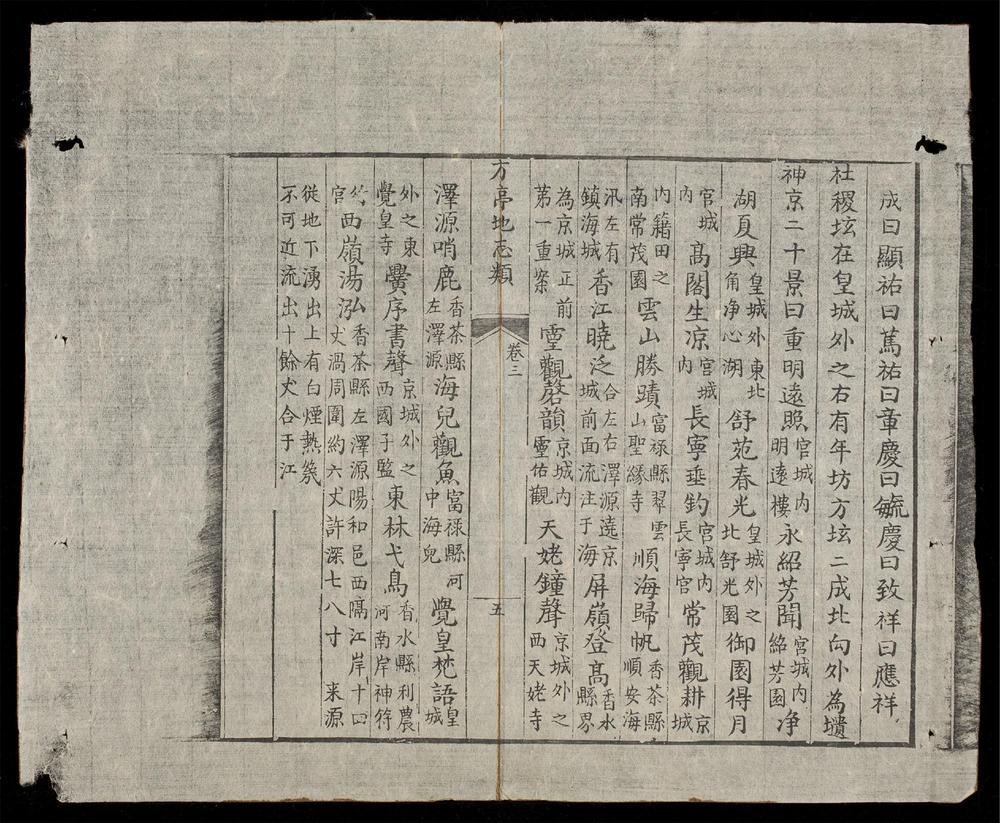 成曰顯祐曰篤祐曰章慶曰毓慶曰致祥曰應祥
社稷坛在皇城外之右有年坊方坛二成北向外為壝
神京二十景曰重明遠照宮城内明遠樓永紹芳聞宮城内紹芳園净
湖夏興皇城外東北角净心湖舒苑春光皇城外之北舒光園御園得月
宮城内高閣生凉宮城内長寧垂釣宮城内長寧宮常茂觀耕京城
内籍田之南常茂園雲山勝蹟富禄縣翠雲山聖縁寺順海歸帆香茶縣順安海
汛左有鎮海城香江曉泛合左右澤源遶京城前面流注于海屏嶺登高香水縣界
為京城正前第一重案靈觀磬韻京城内靈佑觀天姥鐘聲京城外之西天姥寺
方亭地志類
卷三
五
澤源哨鹿香茶縣左澤源海兒觀魚富禄縣河中海兒覺皇梵語皇城
外之東覺皇寺黌序書聲京城外之西國子監東林弋鳥香水縣利農河南岸神符
竹宮西嶺湯泓香茶縣左澤源陽和邑西隔江岸十四丈渦周圍約六丈許深七八寸来源
從地下湧出上有白煙熱氣
不可近流出十餘丈合于江